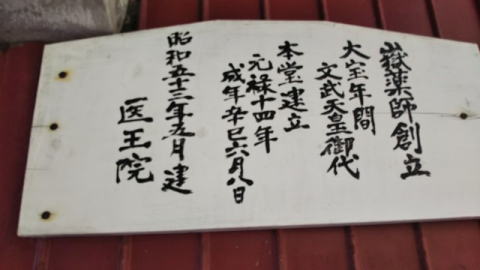 嶽薬師創立
大宝年間
文武天皇御代
本堂建立
元禄十四年
成年辛巳六月八日
昭和五十三年五月建
医王院